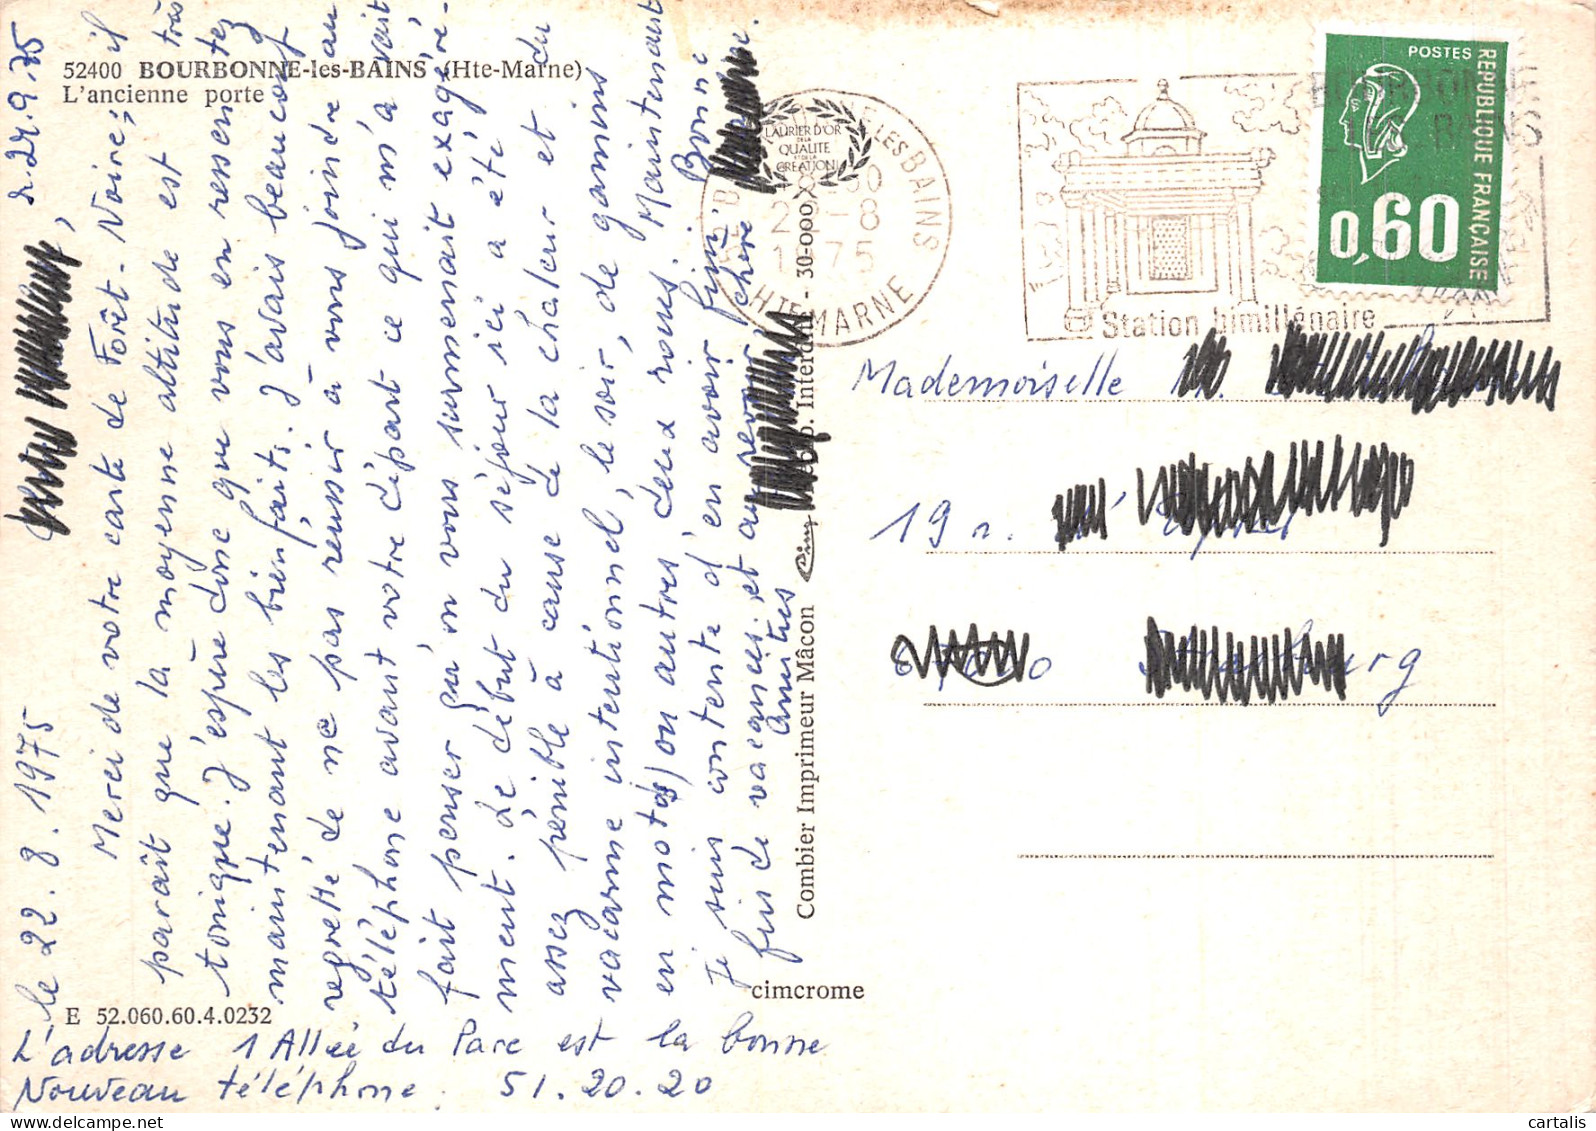 52400 BOURBONNE-les-BAINS (Hte-Marne)
L'ancienne porte
le 22.8.1975
r. 24.9.75
Merci de votre carte de Forêt-Noire; il
paraît que la moyenne altitude est très
tonique. J'espère donc que vous en ressentez
maintenant les bienfaits. J'avais beaucoup
regretté de ne pas réussir à vous joindre au
téléphone avant votre départ ce qui m'a
fait penser qu'on vous surmenait exagéré-
ment. Le début du séjour ici a été
assez pénible à cause de la chaleur et du
vacarme intentionnel, le soir, de gamins
en motos ou autres deux roues. Maintenant
Je suis contente d'en avoir fini. Bonne
fin de vacances, et au revoir chère
Amitiés
E 52.060.60.4.0232
L'adresse 1 Allée du Parc est la bonne
Nouveau téléphone : 51.20.20
Combier Imprimeur Mâcon Cim Repro. Interdite - 30-000
cimcrome
LAURIER D'OR
DE LA
QUALITE
ET DE LA
CREATION
BOURBONNE LES BAINS
HTE MARNE
BOURBONNE
LES BAINS
Station bimillénaire
POSTES
REPUBLIQUE FRANÇAISE
0,60
Mademoiselle
19 r.
cartalis